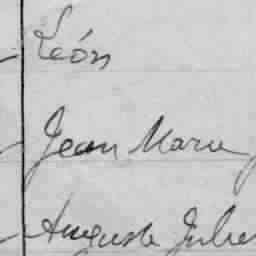 León
Jean Marie
Auguste Jules